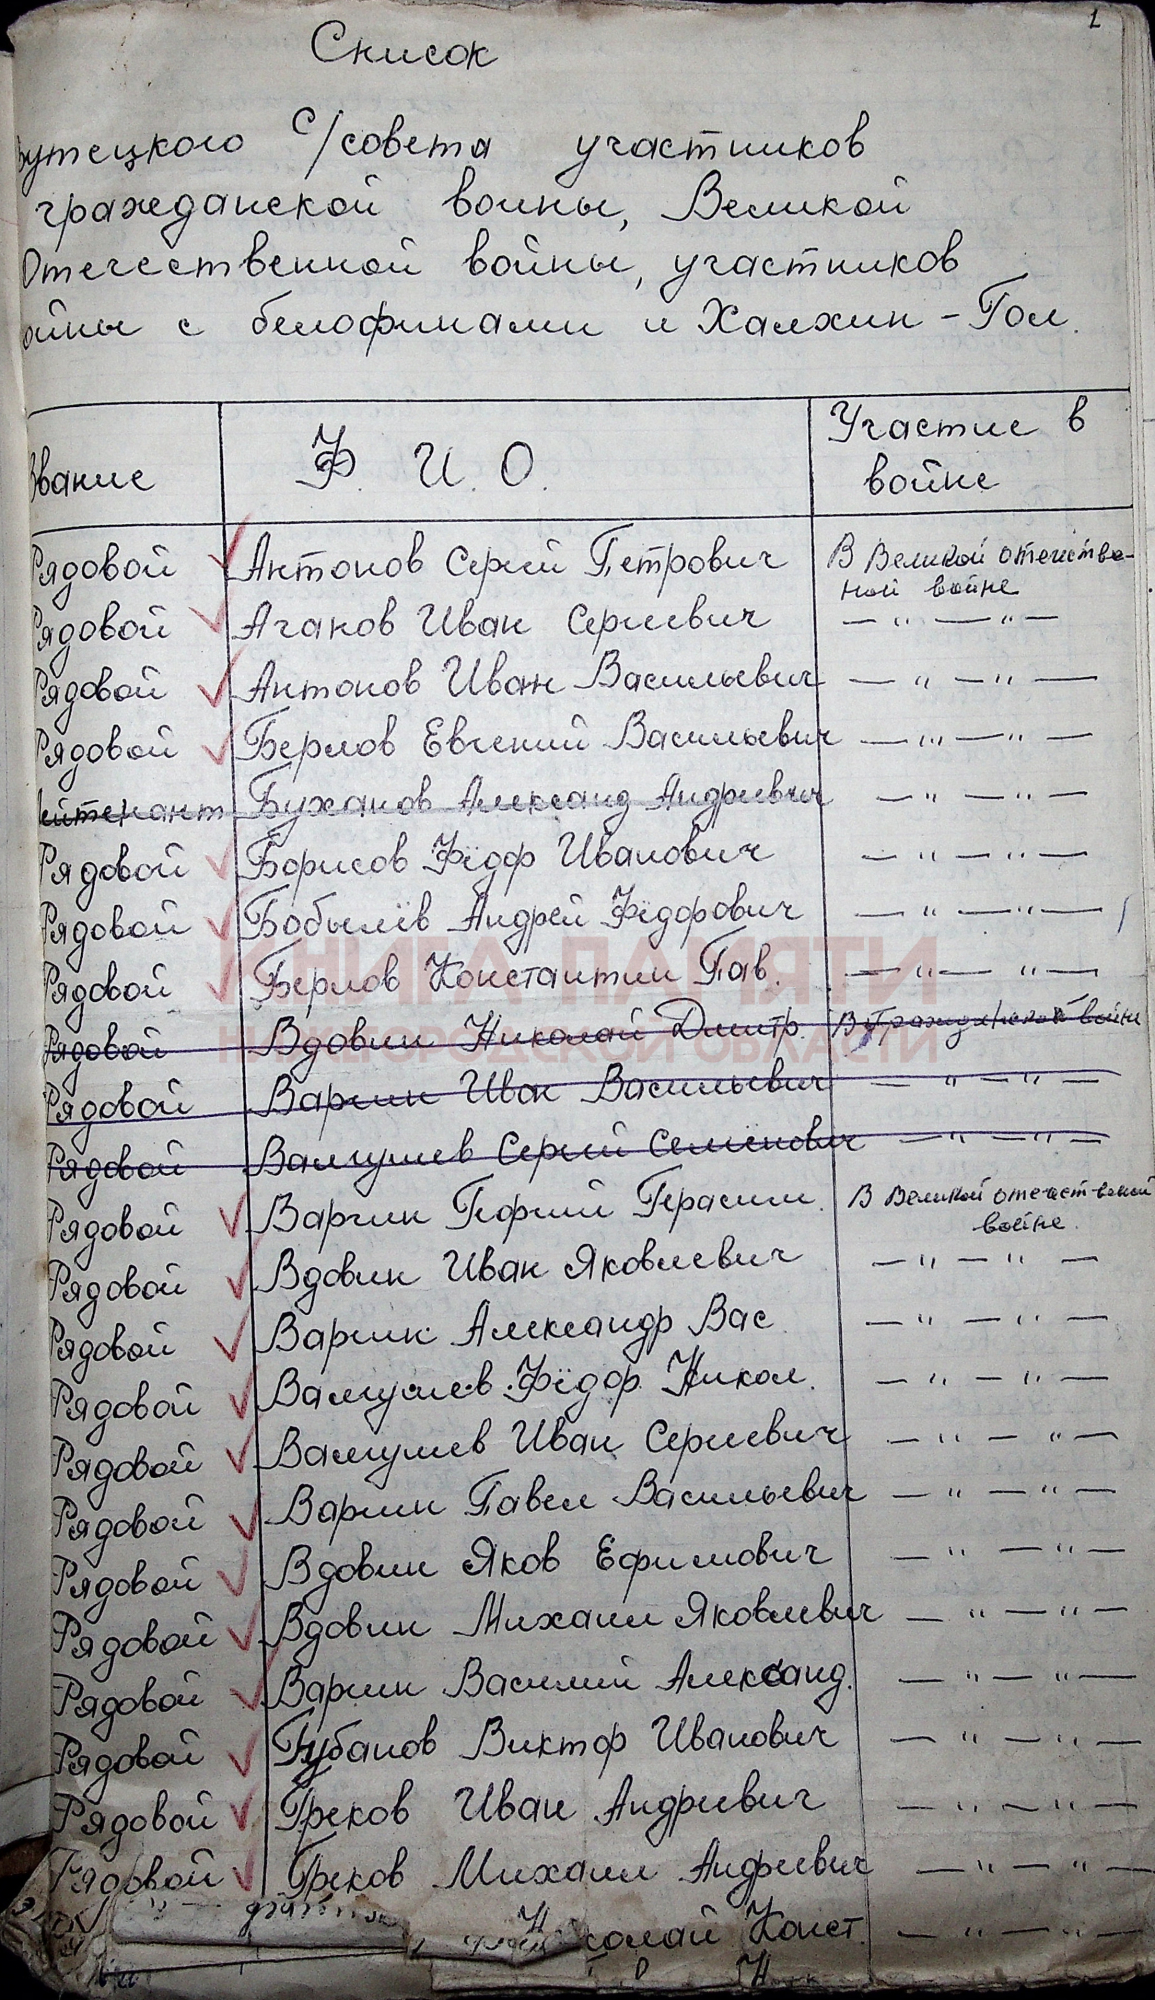 1
Список
утецкого с/совета участников
гражданской войны, Великой
Отечественной войны, участников
ойны с белофинами и Халхин-Гол.
Звание Ф. И. О. Участие в
войне
Рядовой Антонов Сергей Петрович В Великой отечестве-
ной войне
Рядовой Агапов Иван Сергеевич — " — " —
Рядовой Антонов Иван Васильевич — " — " —
Рядовой Берлов Евгений Васильевич — " — " —
лейтенант Буханов Александ Андреевич — " — " —
Рядовой Борисов Фёдор Иванович — " — " —
Рядовой Бобылёв Андрей Фёдорович — " — " —
Рядовой Берлов Константин Пав. — " — " —
КНИГА ПАМЯТИ
НИЖЕГОРОДСКОЙ ОБЛАСТИ
Рядовой Вдовин Николай Дмитр. В Гражданской войне
Рядовой Варгин Иван Васильевич — " — " —
Рядовой Валгушев Сергей Семёнович — " — " —
Рядовой Варгин Георгий Герасим. В Великой отечест-веной
войне.
Рядовой Вдовин Иван Яковлевич — " — " —
Рядовой Варгин Александр Вас. — " — " —
Рядовой Валгушев Фёдор Никол. — " — " —
Рядовой Валгушев Иван Сергеевич — " — " —
Рядовой Варгин Павел Васильевич — " — " —
Рядовой Вдовин Яков Ефимович — " — " —
Рядовой Вдовин Михаил Яковлевич — " — " —
Рядовой Варгин Василий Александ. — " — " —
Рядовой Губанов Виктор Иванович — " — " —
Рядовой Греков Иван Андреевич — " — " —
Рядовой Греков Михаил Андреевич — " — " —
колай Конст. — " — " —